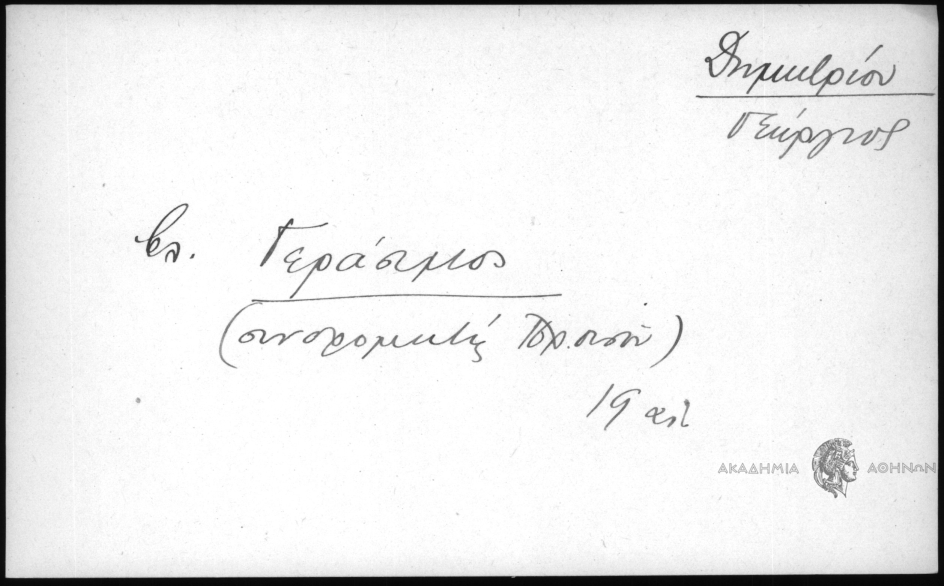 Δημητρίου
Γεώργιος
βλ. Γεράσιμος
(συνδρομητής
19 αἰ
ΑΚΑΔΗΜΙΑ ΑΘΗΝΩΝ